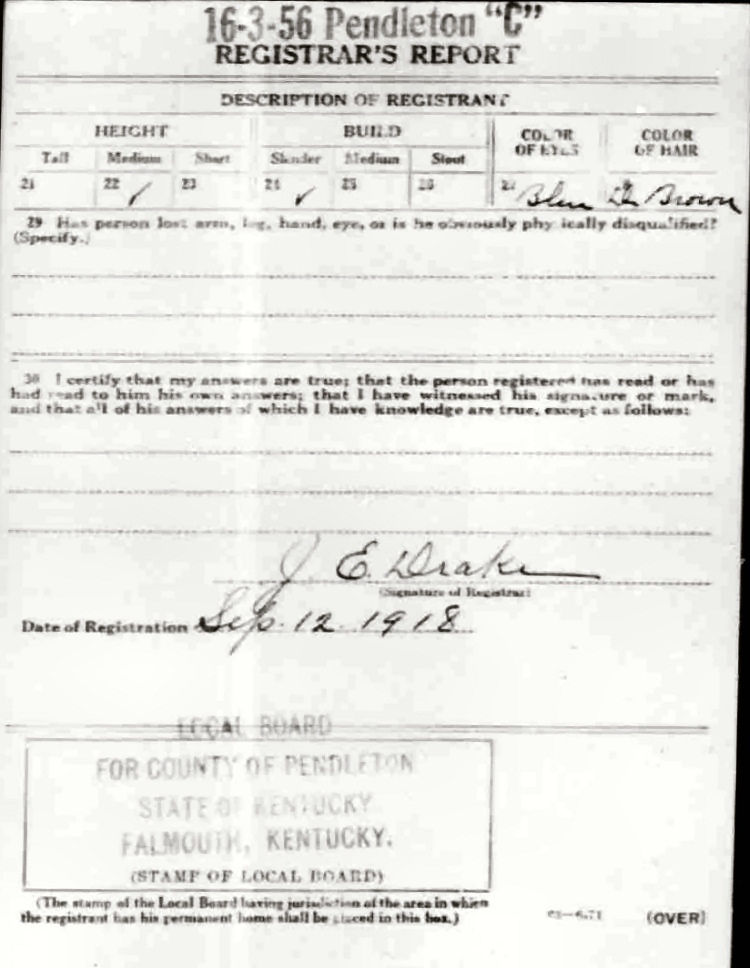 16-3-56 Pendleton "C"
REGISTRAR'S REPORT
DESCRIPTION OF REGISTRANT
HEIGHT BUILD COLOR OF EYES COLOR OF HAIR
Tall Medium Short Slender Medium Stout
21 22 ✓ 23 24 ✓ 25 26 27 Blue Dk Brown
29 Has person lost arm, leg, hand, eye, or is he obviously physically disqualified?
(Specify.)
30 I certify that my answers are true; that the person registered has read or has
had read to him his own answers; that I have witnessed his signature or mark,
and that all of his answers of which I have knowledge are true, except as follows:
J. E. Drake
(Signature of Registrar)
Date of Registration Sep. 12 1918
LOCAL BOARD
FOR COUNTY OF PENDLETON
STATE OF KENTUCKY
FALMOUTH, KENTUCKY.
(STAMP OF LOCAL BOARD)
(The stamp of the Local Board having jurisdiction of the area in which
the registrant has his permanent home shall be placed in this box.)
(OVER)